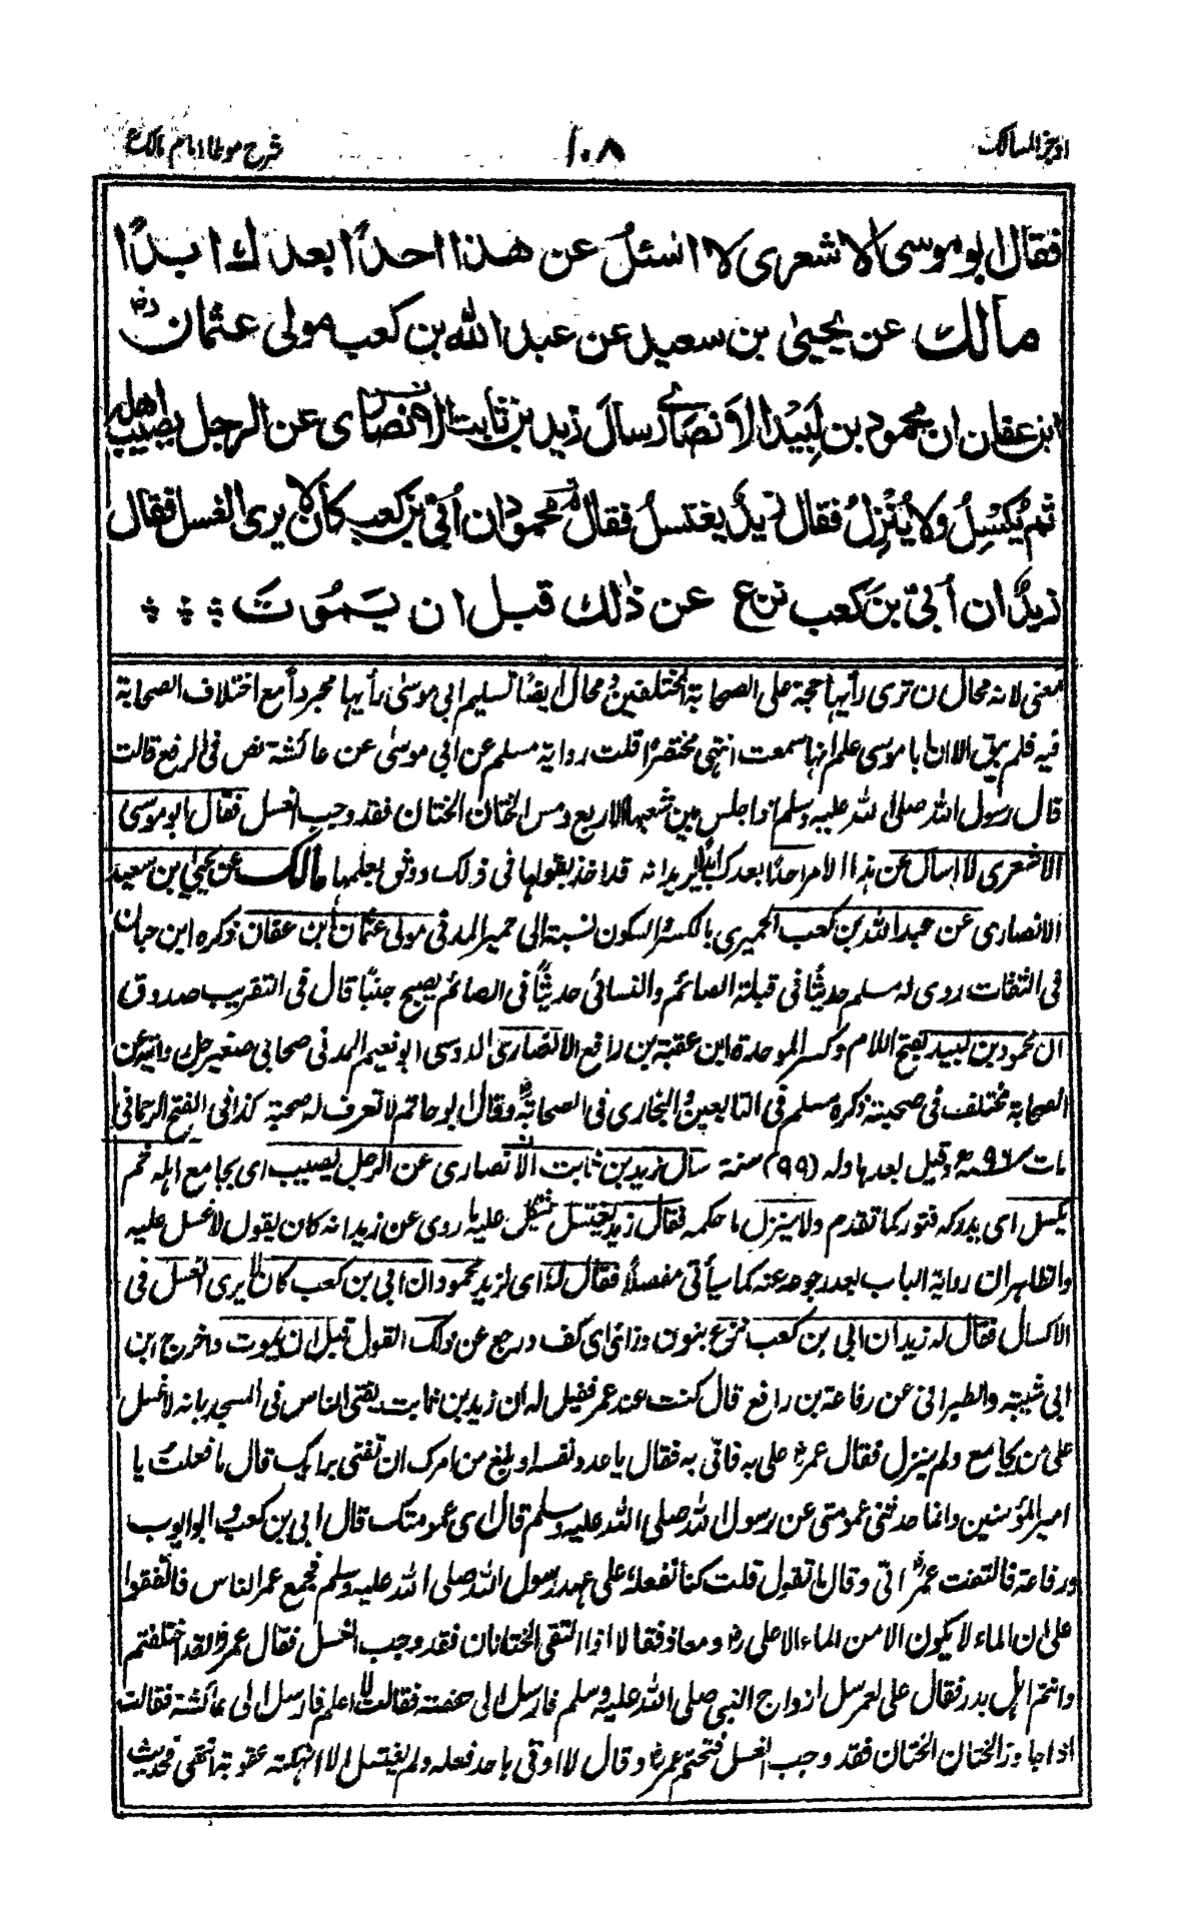 اوجز المسالك ١٠٨ شرح موطا امام مالك
فقال ابو موسى الاشعرى لا اسئل عن هذا احدًا بعدك ابدًا
مالك عن يحيىٰ بن سعيد عن عبد الله بن كعب مولى عثمان رض
ابن عفان ان محمود بن لَبِيْد الانصارى سأل زيد بن ثابت الانصارى عن الرجل يصيب اهله
ثم يُكسِلُ ولا يُنْزِلُ فقال زيدٌ يغتسلُ فقال له محمود ان اُبَيّ بن كعب كان لا يرى الغسل فقال
زيدٌ ان اُبَيّ بن كعب نزع عن ذٰلك قبل ان يَمُوْتَ
معنى لانه محال ان ترى رأيها حجة على الصحابة المختلفين ومحال ايضا تسليم ابي موسىٰ رأيها مجرداً مع اختلاف الصحابة
فيه فلم يبق الا ان ابا موسى علم انها سمعت انتهى مختصرًا قلت رواية مسلم عن ابى موسىٰ عن عائشة نص فى الرفع قالت
قال رسول الله صلى الله عليه وسلم اذا جلس بين شعبها الاربع ومس الختان الختان فقد وجب الغسل فقال ابو موسى
الاشعرى لا اسأل عن هذا الامر احدًا بعدك ابدًا يريد انه قد اخذ بقولها فى ذلك ووثق بعلمها مالك عن يحيىٰ بن سعيد
الانصارى عن عبد الله بن كعب الحميرى بالكسر والسكون نسبة الى حمير المدنى مولى عثمان ابن عفان ذكره ابن حبان
فى الثقات روى له مسلم حديثًا فى قبلة الصائم والنسائى حديثًا فى الصائم يصبح جنبًا قال فى التقريب صدوق
ان محمود بن لبيد بفتح اللام وكسر الموحدة ابن عقبة بن رافع الانصارى الاوسى ابو نعيم المدنى صحابى صغير جل روايته عن
الصحابة مختلف فى صحبته ذكره مسلم فى التابعين والبخارى فى الصحابة وقال ابو حاتم لا تعرف له صحبة كذا فى الفتح الرحمانى
مات ٩٦ﮪ وقيل بعدها وله (٩٩) سنة سأل زيد بن ثابت الانصارى عن الرجل يصيب اى يجامع اهله ثم
يكسل اى يدركه فتور كما تقدم ولا ينزل ما حكمه فقال زيد يغتسل مشكل عليه ما روى عن زيد انه كان يقول لا غسل عليه
والظاهر ان رواية الباب بعد رجوعه عنه كما سيأتى مفصلاً فقال له اى لزيد محمود ان ابى بن كعب كان لا يرى الغسل فى
الاكسال فقال له زيد ان ابى بن كعب نزع بنون وزائ اى كف ورجع عن ذلك القول قبل ان يموت واخرج ابن
ابى شيبة والطبرانى عن رفاعة بن رافع قال كنت عند عمر فقيل له ان زيد بن ثابت يفتى الناس فى المسجد بانه لا غسل
على من يجامع ولم ينزل فقال عمر رض على به فاتى به فقال يا عدو نفسه او بلغ من امرك ان تفتى برايك قال ما فعلت يا
امير المؤمنين وانما حدثنى عمومتى عن رسول الله صلى الله عليه وسلم قال اى عمومتك قال ابى بن كعب وابو ايوب
ورفاعة فالتفت عمر رض اتى وقال ما تقول قلت كنا نفعله على عهد رسول الله صلى الله عليه وسلم فجمع عمر الناس فاتفقوا
على ان الماء لا يكون الا من الماء الا على رض ومعاذ فقالا اذا التقى الختانان فقد وجب الغسل فقال عمر رض لقد اختلفتم
وانتم اهل بدر فقال على لعمر سل ازواج النبى صلى الله عليه وسلم فارسل الى حفصة فقالت لا اعلم فارسل الى عائشة فقالت
اذا جاوز الختان الختان فقد وجب الغسل فتحتم عمر رض وقال لا اوتى باحد فعله ولم يغتسل الا انهكته عقوبة انتهى فحديث